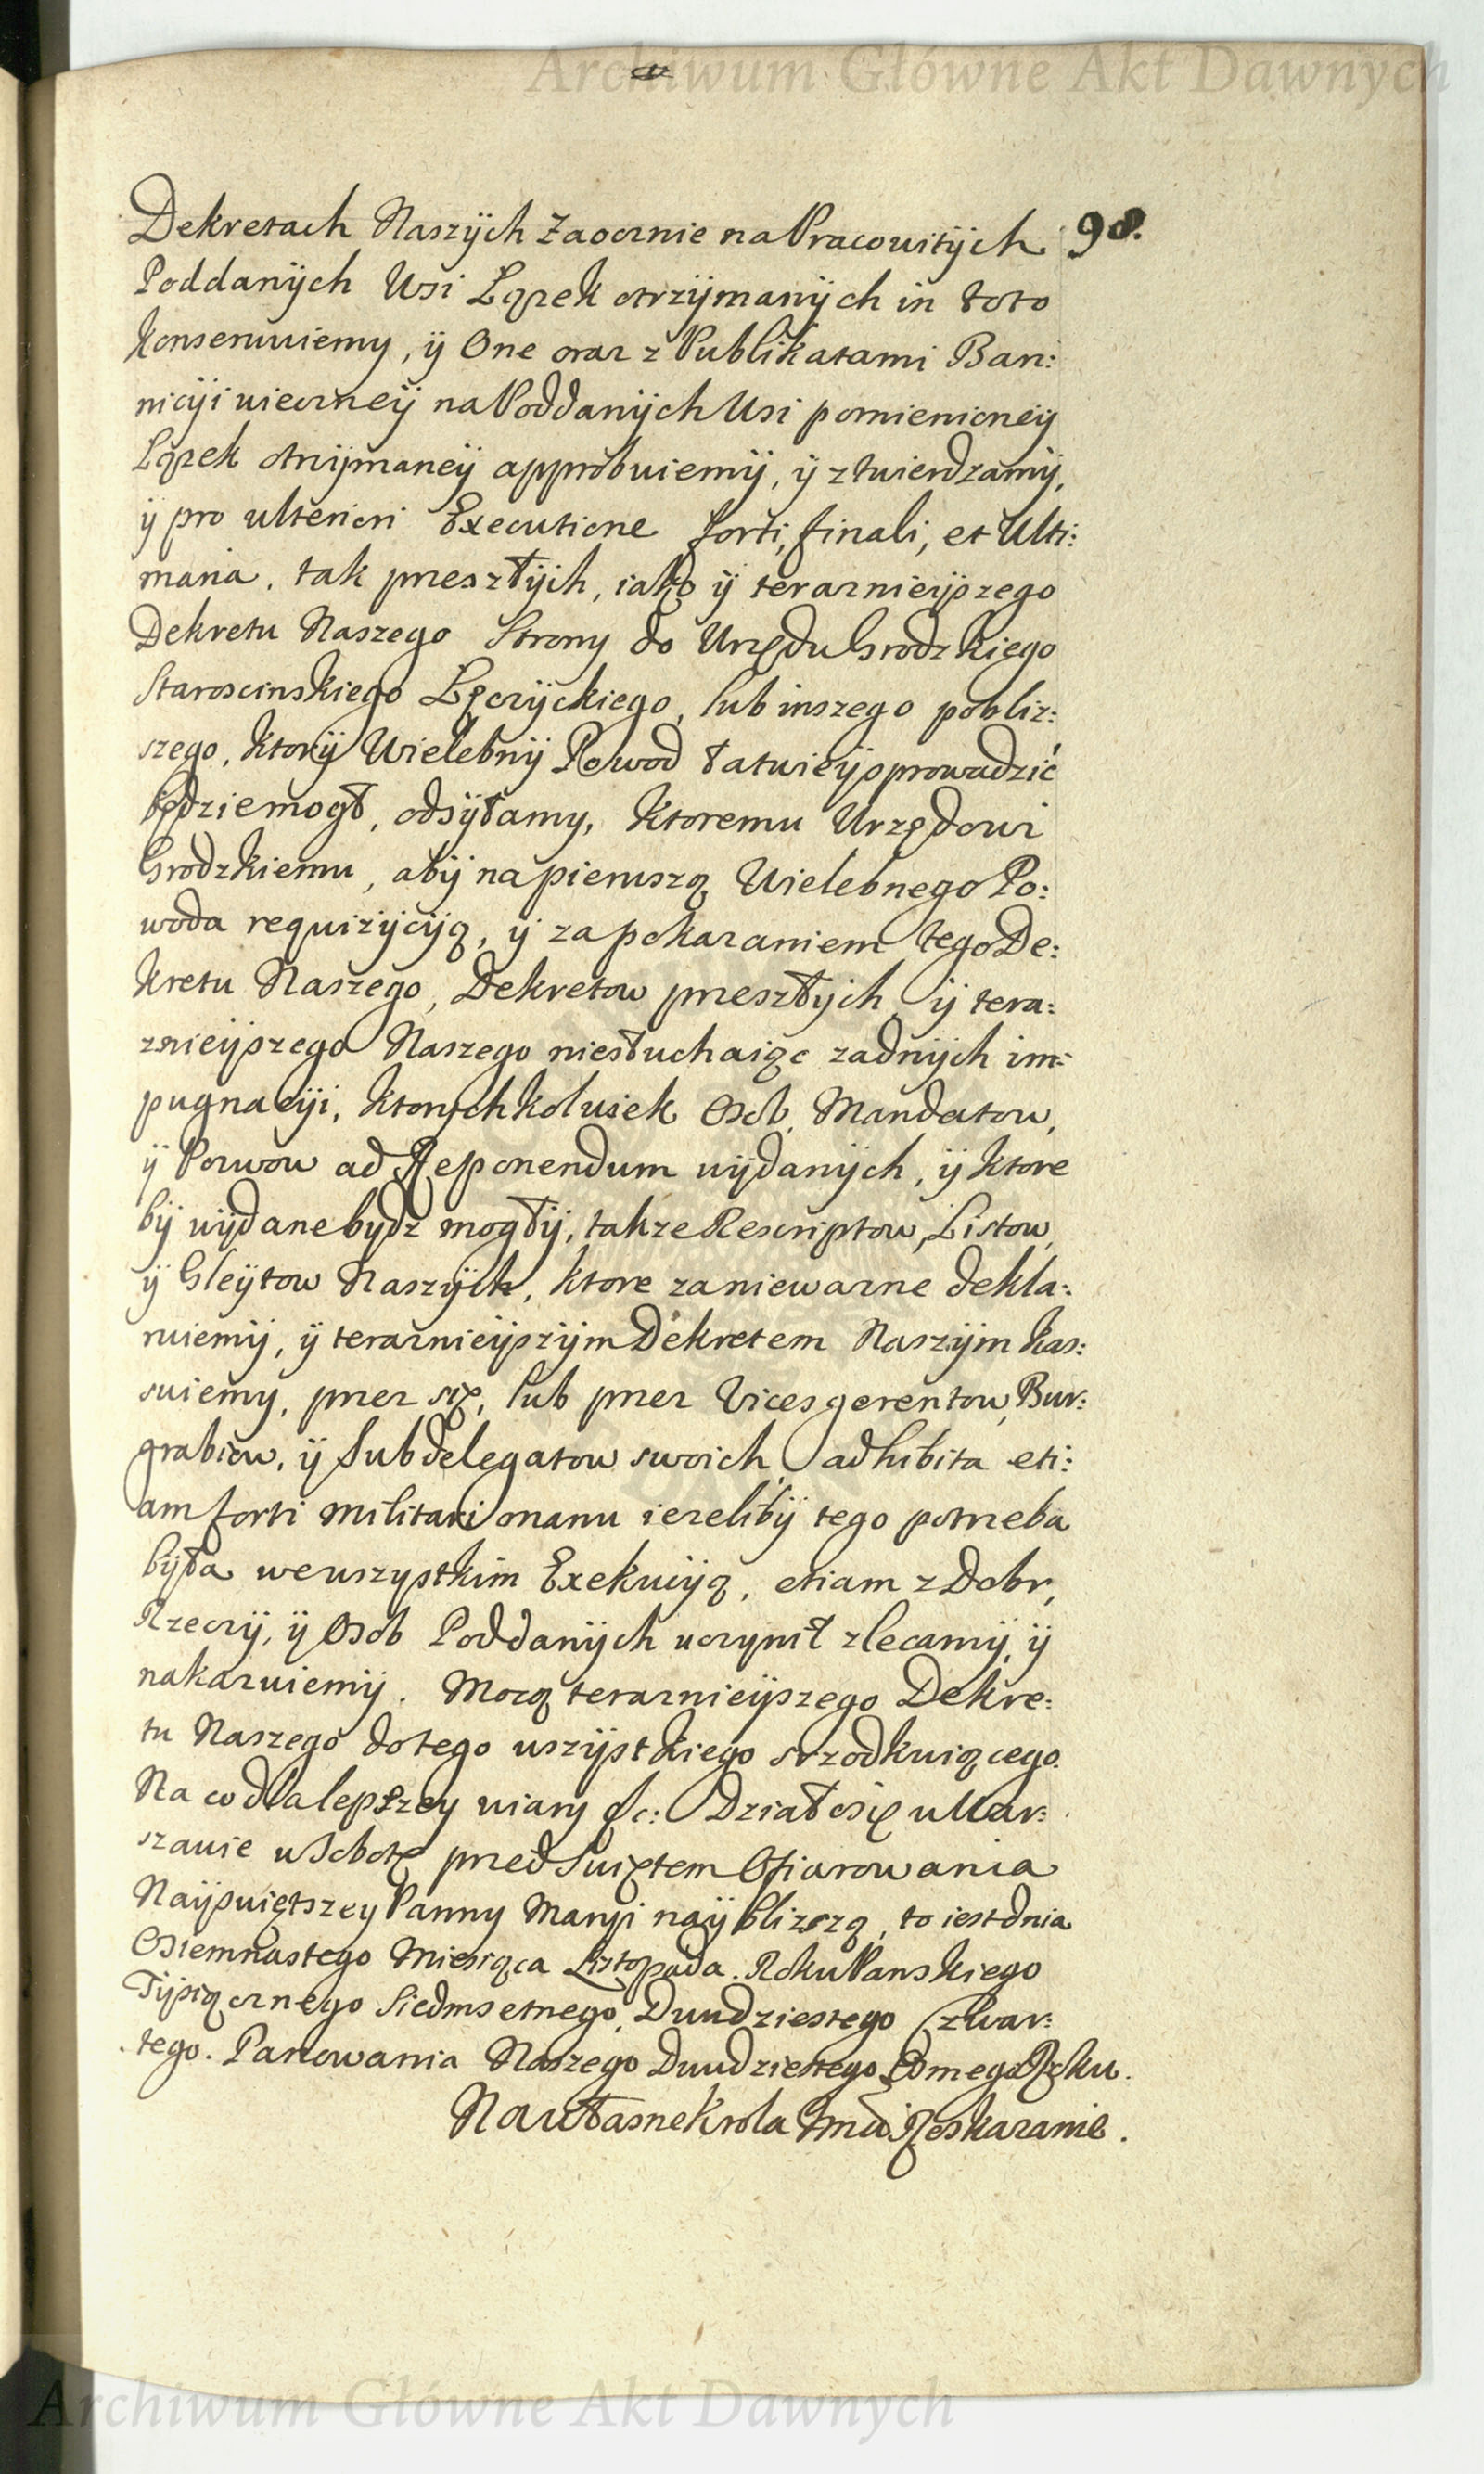 Archiwum Główne Akt Dawnych
98.
Dekretach Naszÿch Zaocznie na Pracowitÿch
Poddanÿch Wsi Łązek otrzÿmanÿch in toto
konserwuiemy, ÿ One oraz z Publikatami Ban:
nicÿi wieczneÿ na Poddanÿch Wsi pomienioneÿ
Łązek otrzÿmaneÿ approbuiemÿ, ÿ ztwierdzamÿ,
ÿ pro ulteriori Executione forti, finali, et Ulti:
maria, tak przeszłÿch, iako ÿ terazniejszego
Dekretu Naszego Strony do Urzędu Grodzkiego
Staroscinskiego Łęczÿckiego, lub inszego pobliz:
szego, ktorÿ Wielebnÿ Powod łatwieÿ sprowadzić
będzie mogł, odsÿłamy, ktoremu Urzędowi
Grodzkiemu, abÿ na pierwszą Wielebnego Po:
woda requizÿcÿą, ÿ za pokazaniem tego De:
kretu Naszego, Dekretow przeszłÿch, ÿ tera:
znieÿszego Naszego niesłuchaiąc zadnÿch im:
pugnacÿi, ktorychkolwiek Osob, Mandatow,
ÿ Pozwow ad Reponendum wÿdanÿch, ÿ ktore
bÿ wÿdane bydz mogłÿ, takze Rescriptow, Listow,
ÿ Gleÿtow Naszÿch, ktore za niewazne dekla:
ruiemÿ, ÿ teraznieÿszÿm Dekretem Naszÿm kas:
suiemy, przez się, lub przez Vicesgerentow, Bur:
grabiow, ÿ Subdelegatow swoich, adhibita eti:
am forti militari manu iezelibÿ tego potrzeba
bÿła we wszystkim Exekucÿą, etiam z Dobr,
Rzeczÿ, ÿ Osob Poddanÿch uczynił zlecamÿ, ÿ
nakazuiemÿ. Mocą teraznieÿszego Dekre:
tu Naszego do tego wszÿstkiego srzodkuiącego.
Na co dla lepszey wiary &c: Działo się w War:
szawie w Sobotę przed Swiętem Ofiarowania
Naÿswiętszey Panny Maryi naÿblizszą, to iest dnia
Osiemnastego Miesiąca Listopada. Roku Panskiego
Tÿsiącznego Siedmsetnego, Dwudziestego Czwar:
tego. Panowania Naszego Dwudziestego Osmego Roku.
Na własne Krola Jmci Roskazanie.
Archiwum Główne Akt Dawnych